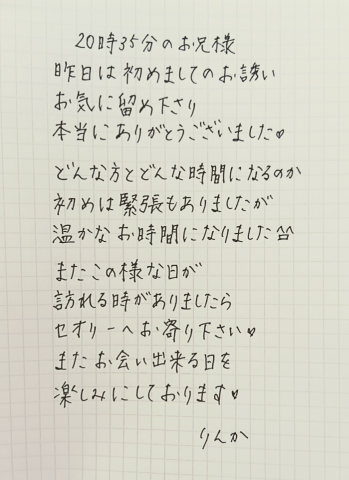 20時35分のお兄様
昨日は初めましてのお誘い
お気に留め下さり
本当にありがとうございました♥
どんな方とどんな時間になるのか
初めは緊張もありましたが
温かなお時間になりました^^
またこの様な日が
訪れる時がありましたら
セオリーへお寄り下さい♥
またお会い出来る日を
楽しみにしております♥
りんか